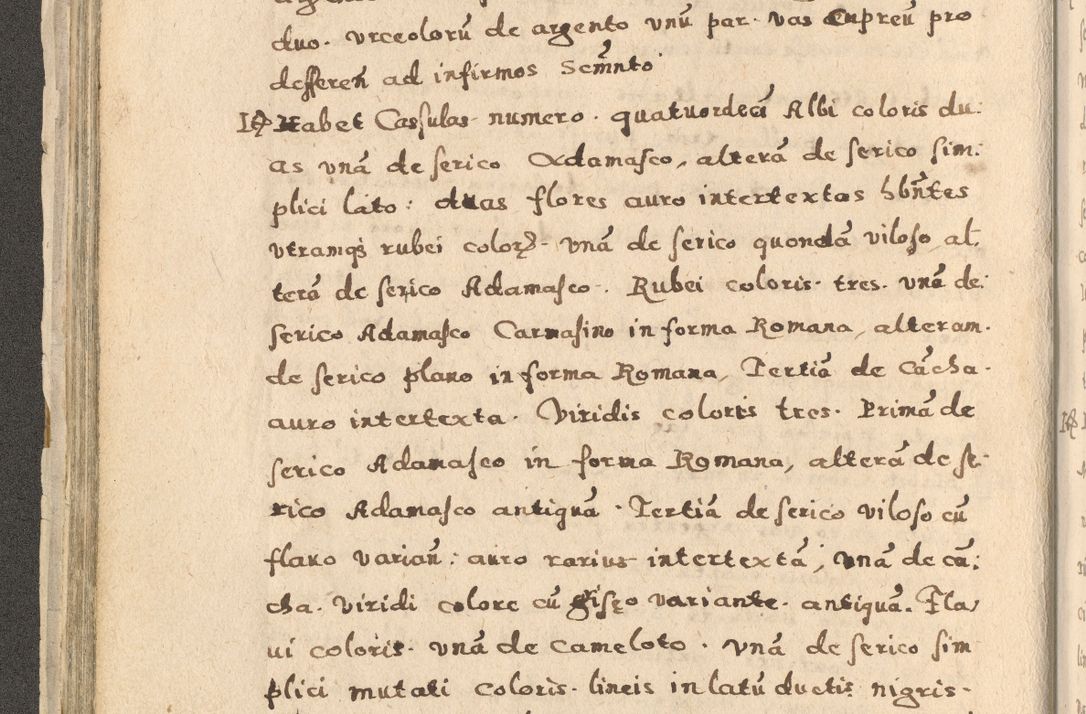 duo. vrceolorũ de argento vnũ par. vas Cupreũ pro
defferen̄ ad infirmos Scm̃nto
Itẽ Habet Casſulas numero. quatuordecĩ Albi coloris du:
as vnã de ſerico Adamaſco, alterã de ſerico ſim:
plici lato: duas flores auro intertextas hbñtes
vtramqȝ rubei colorꝭ. vnã de ſerico quondã viloſo, al:
terã de ſerico Adamaſco. Rubei coloris. tres. vnã de:
ſerico Adamaſco Carmaſino in forma Romana, alteram.
de ſerico plano in forma Romana, Tertiã de Cãcha.
auro intertexta. Viridis coloris tres. Primã de
ſerico Adamaſco in forma Romana, alterã de ſe:
rico Adamaſco antiquã. Tertiã de ſerico viloſo cũ
flauo varian̄: auro rarius intertextã; vnã de cã:
cha. viridi colore cũ giſęo variante. antiquã. Fla/
ui coloris. vnã de Cameloto. vnã de ſerico ſim
plici mutati coloris. lineis in latũ ductis nigris.